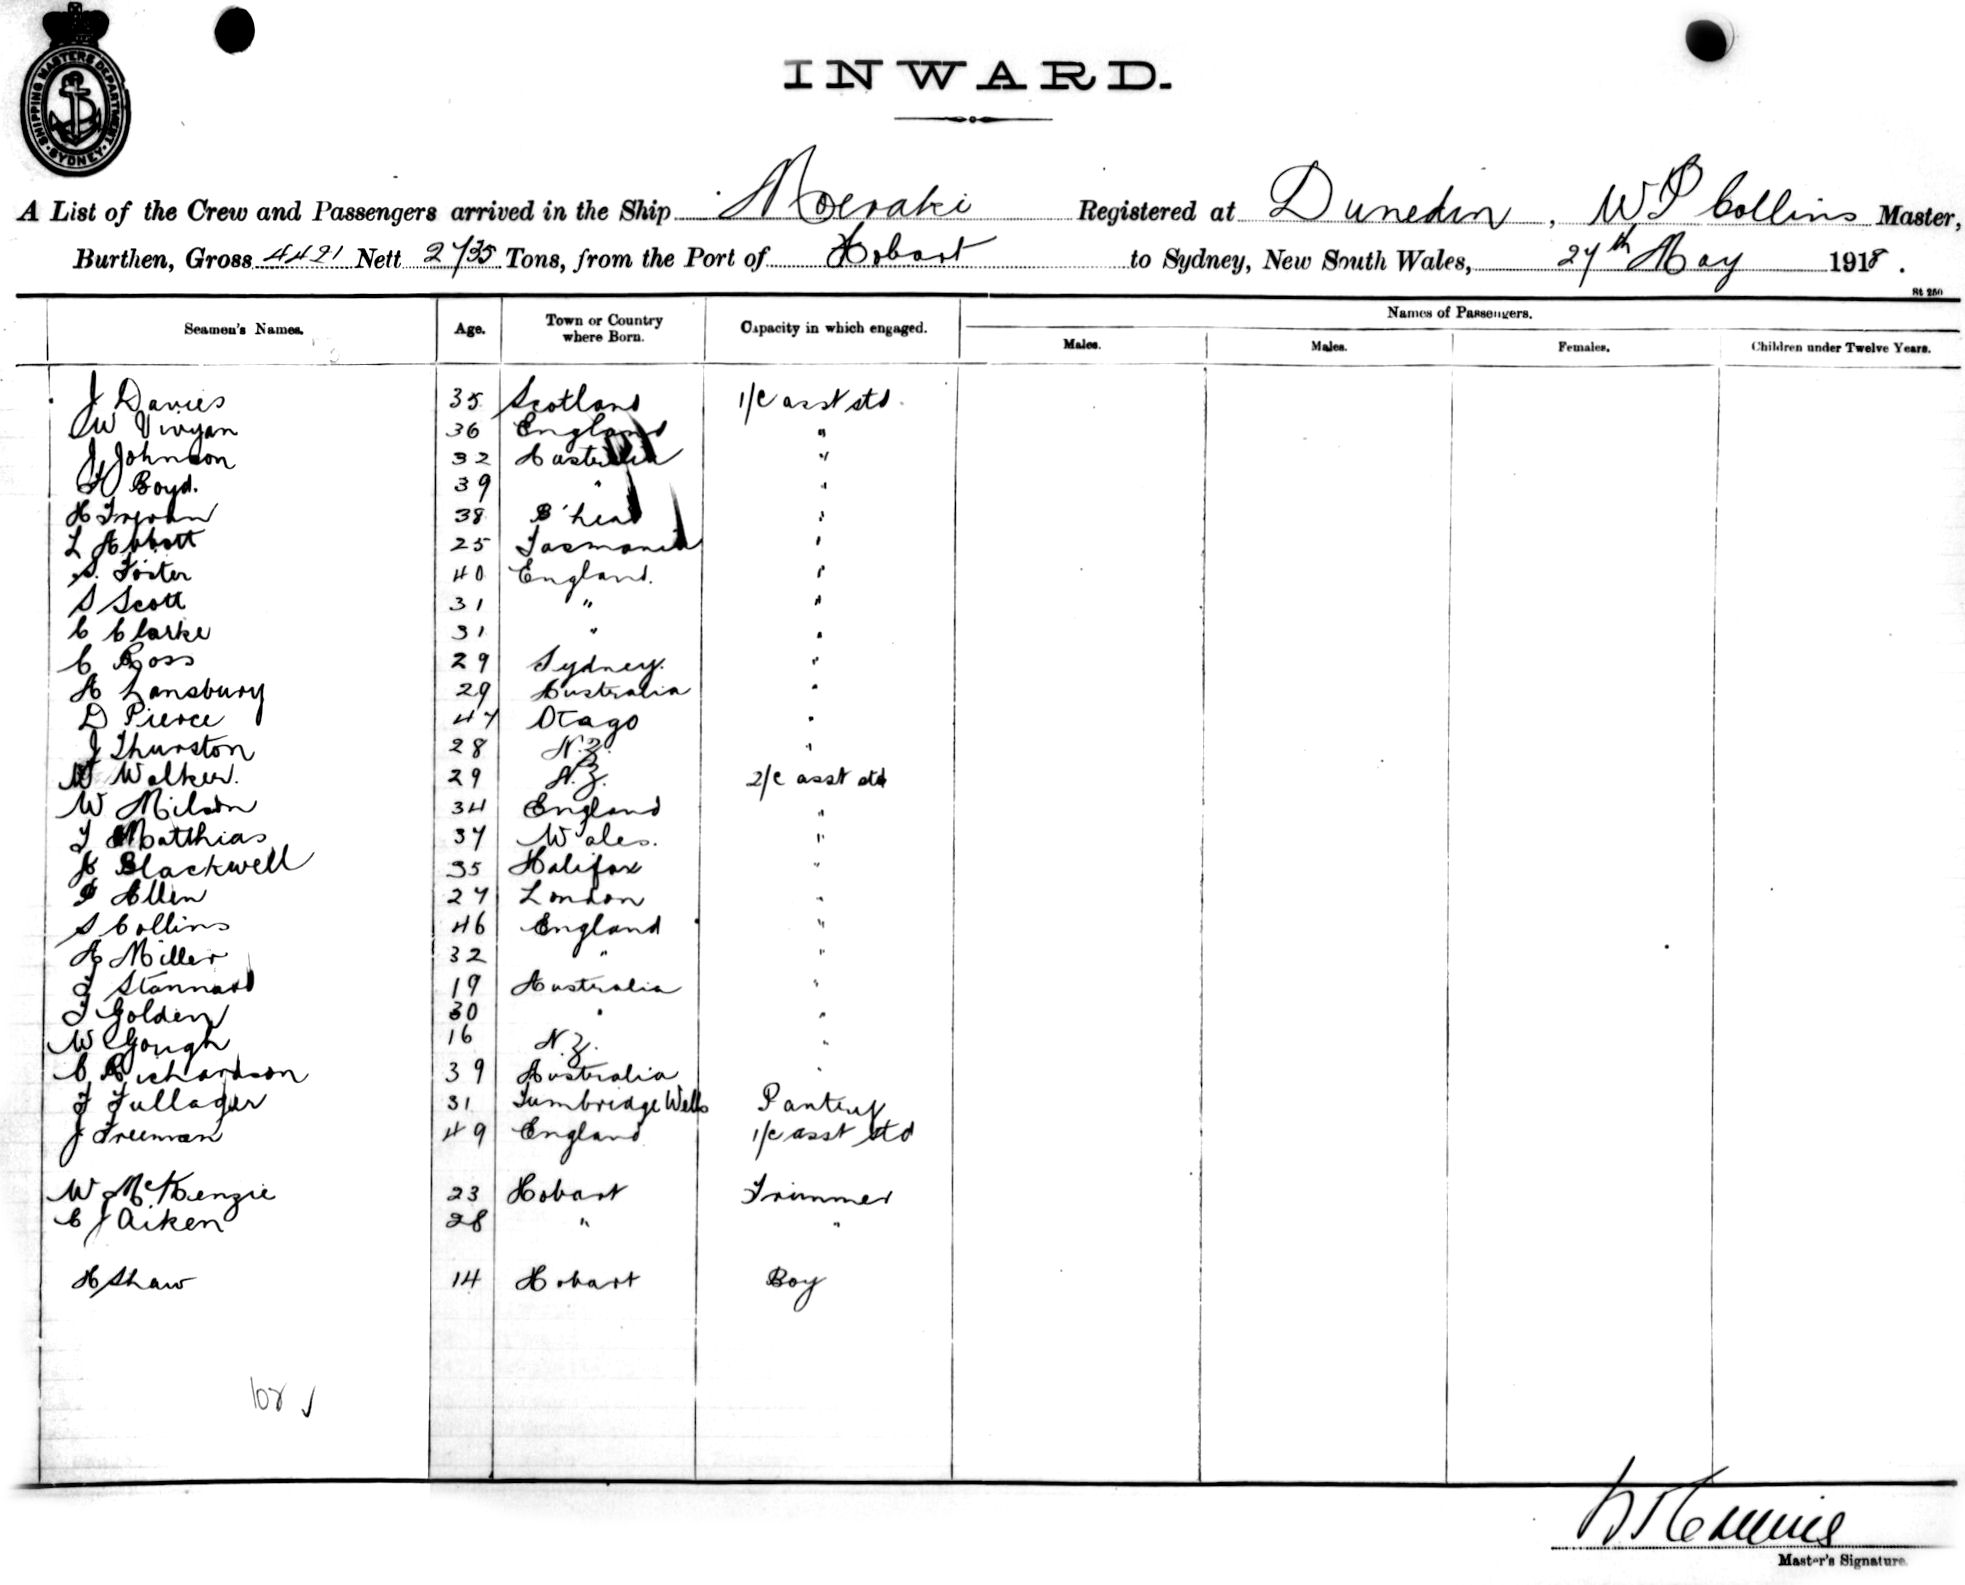 SHIPPING MASTERS DEPARTMENT SYDNEY
INWARD.
A List of the Crew and Passengers arrived in the Ship Moeraki Registered at Dunedin, W P Collins Master,
Burthen, Gross 4421 Nett 2735 Tons, from the Port of Hobart to Sydney, New South Wales, 27th May 1918.
St 250
Seamen's Names. Age. Town or Country where Born. Capacity in which engaged. Names of Passengers.
Males. Males. Females. Children under Twelve Years.
J Davies 35 Scotland 1/C asst std.
W Vivyan 36 England "
J Johnson 32 Australia "
Boyd. 39 " "
H 38 B'head "
L Abbott 25 Tasmania "
S. Foster 40 England. "
S Scott 31 " "
C Clarke 31 " "
C Ross 29 Sydney. "
A Lansbury 29 Australia "
D Pierce 47 Otago "
J Thurston 28 N.Z. "
W Walker. 29 N.Z. 2/C asst std
W Milson 34 England "
T Matthias 37 Wales. "
H Blackwell 35 Halifax "
Allen 27 London "
S Collins 46 England "
A Miller 32 " "
J Stannard 19 Australia "
T Golden 30 " "
W Gough 16 N.Z. "
C Richardson 39 Australia "
F Fullager 31 Tumbridge Wells Pantry
J Freeman 49 England 1/C asst std
W McKenzie 23 Hobart Trimmer
C J Aiken 28 " "
H Shaw 14 Hobart Boy
108 ✓
W P Collins
Master's Signature.